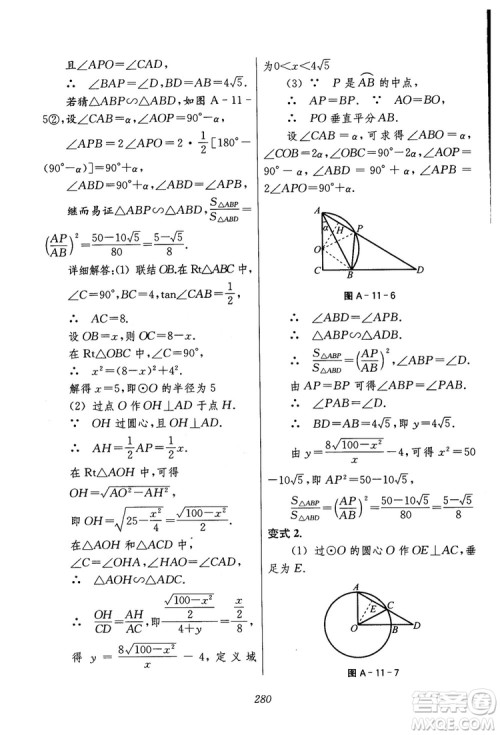 且∠APO=∠CAD,
∴ ∠BAP=∠D, BD=AB=4√5.
若猜△ABP∽△ABD, 如图 A-11-
5②, 设∠CAD=α,∠APO=90°-α,
∠APB=2∠APO=2·1/2[180°-
(90°-α)]=90°+α,
∠ABD=90°+α,∠ABD=∠APB,
继而易证△ABP∽△ABD, S△ABP/S△ABD=
(AP/AB)²=(50-10√5)/80=(5-√5)/8.
详细解答:(1) 联结OB.在 Rt△ABC
中,∠C=90°,BC=4,tan∠CAB=1/2,
∴ AC=8.
设 OB=x,则OC=8-x.
在 Rt△OBC 中,∠C=90°,
∴ x²=(8-x)²+4².
解得 x=5,即⊙O 的半径为 5
(2) 过点 O 作 OH⊥AD 于点 H.
∵ OH 过圆心,且 OH⊥AD,
∴ AH=1/2 AP=1/2 x.
在 Rt△AOH 中,可得
OH=√(AO²-AH²),
即 OH=√(25-x²/4)=√(100-x²)/2.
在△AOH 和△ADC 中,
∠C=∠OHA,∠HAO=∠CAD,
∴ △AOH∽△ADC.
∴ OH/CD=AH/AC,即(√(100-x²)/2)/(4+y)=(x/2)/8
得 y=8√(100-x²)/x-4,定义域
为0<x<4√5
(3) ∵ P 是AB的中点,
∴ AP=BP. ∵ AO=BO,
∴ PO 垂直平分 AB.
设∠CAB=α,可求得∠ABO=α,
∠COB=2α,∠OBC=90°-2α,∠AOP
=90°-α,∠ABD=90°+α,∠APB=
2∠APO=90°+α.
A
α
H
P
O
C
B
D
图 A-11-6
∴ ∠ABD=∠APB.
∴ △ABP∽△ABD.
∴ S△ABP/S△ABD=(AP/AB)².
∴ ∠ABP=∠D.
∴ BD=AB=4√5,AD=4+4√5.
由 y=8√(100-x²)/x-4,可得 x²=50
-10√5,即 AP²=50-10√5,
S△ABP/S△ABD=(50-10√5)/80=(5-√5)/8.
变式 2.
(1) 过⊙O 的圆心 O 作 OE⊥AC,垂
足为 E.
A
E
C
O
B
D
图 A-11-7
280
答案圈
MXQE.COM